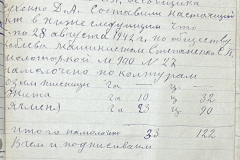 ученко Д.А. Составили настоящий
кт в ниже следующим что
по 28 августа 1942 г по обществу
машинистом Степаненко С.П.
молотилкой М 900 № 22
намолочено по культурам
озим пшеницы га ц.
Жита га 10 ц 32
Ячменя га 23 ц 90
итого намолочено 33 122
В чем и подписываем